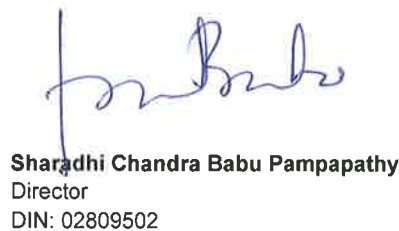 Sharadhi Chandra Babu Pampapathy
Director
DIN: 02809502